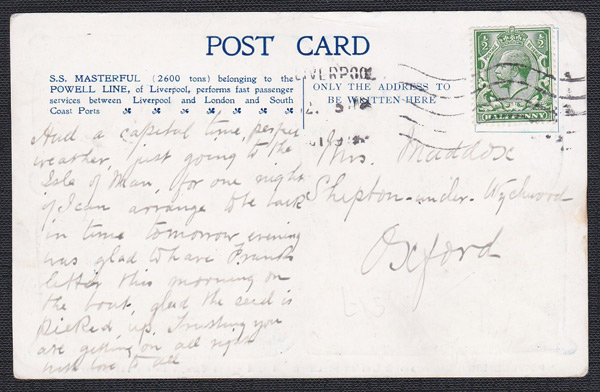 POST CARD
S.S. MASTERFUL (2600 tons) belonging to the
POWELL LINE, of Liverpool, performs fast passenger
services between Liverpool and London and South
Coast Ports
LIVERPOOL
ONLY THE ADDRESS TO
BE WRITTEN HERE
½ ½
HALFPENNY
Had a capital time, perfect
weather, just going to the
Isle of Man, for one night
if I can arrange to be back
in time tomorrow evening
was glad to have Frank's
letter this morning on
the boat, glad the seed is
picked up, Trusting you
are getting on all right
with love to all
Mrs. Maddox
Shipton-under-Wychwood
Oxford